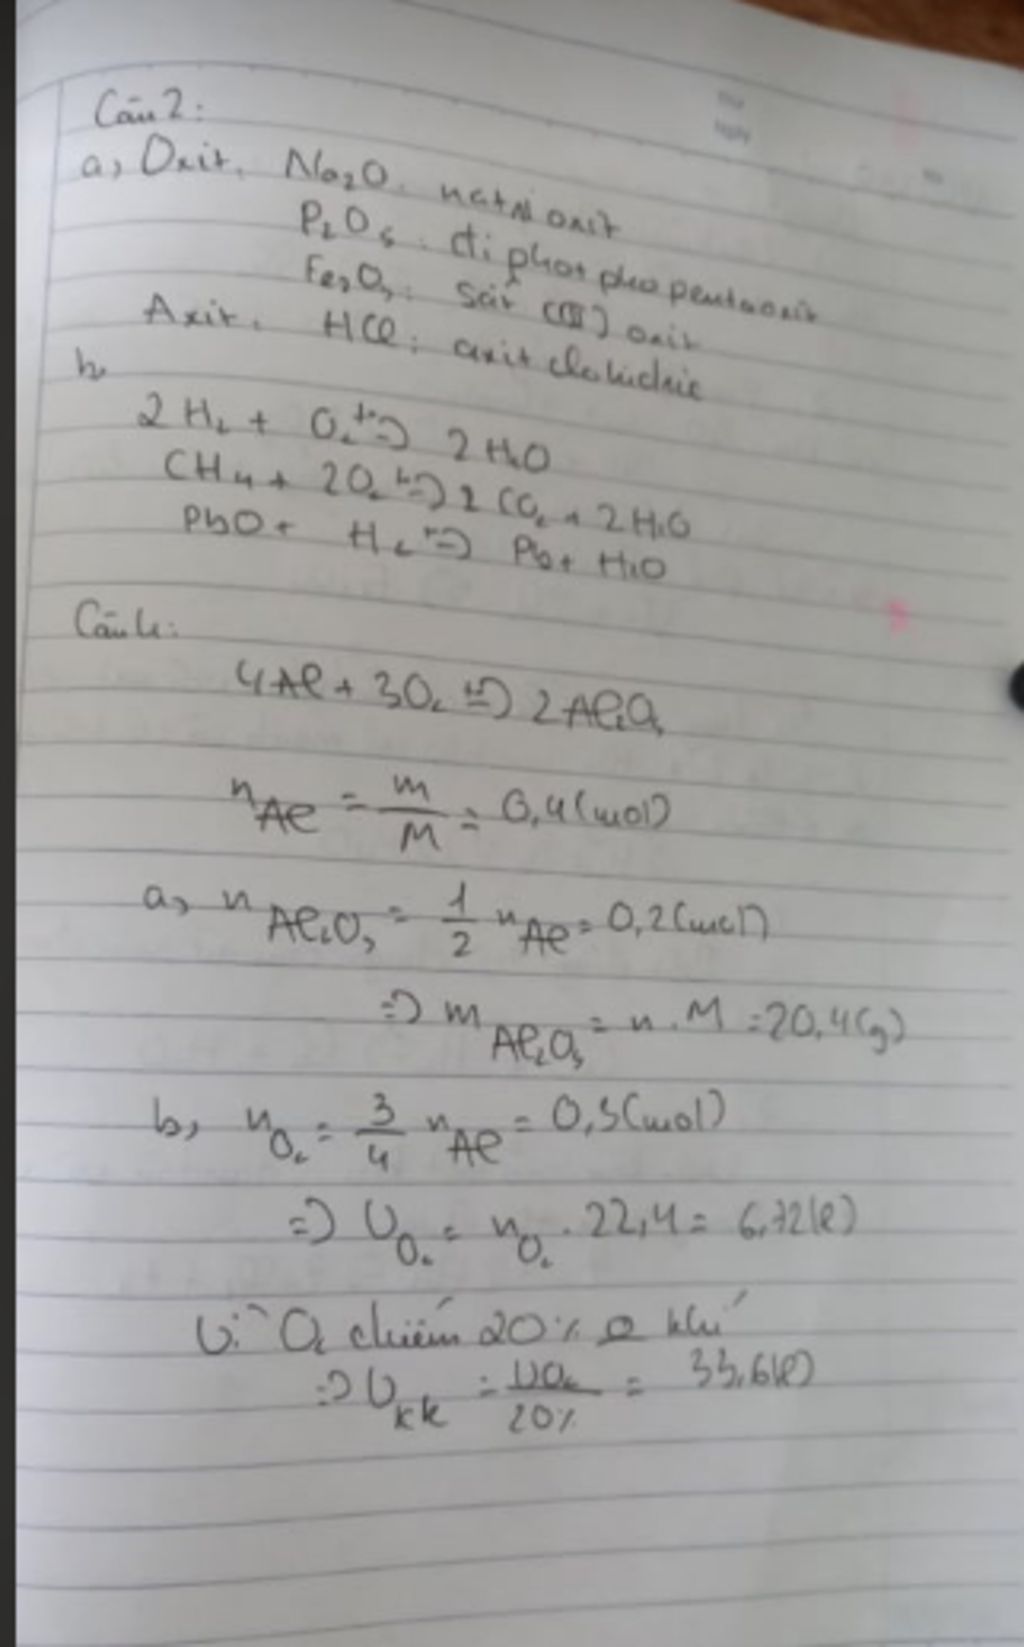 Câu 2:
a, Oxit. Na₂O. natri oxit
P₂O₅. đi photpho pentaoxit
Fe₂O₃: sắt (III) oxit
Axit. HCl: axit clohidric
b,
2H₂ + O₂ t° => 2H₂O
CH₄ + 2O₂ t° => CO₂ + 2H₂O
PbO + H₂ t° => Pb + H₂O
Câu 4:
4Al + 3O₂ t° => 2Al₂O₃
nAl = m/M = 0,4(mol)
a, nAl₂O₃ = 1/2 nAl = 0,2(mol)
=> mAl₂O₃ = n.M = 20,4(g)
b, nO₂ = 3/4 nAl = 0,3(mol)
=> VO₂ = nO₂ . 22,4 = 6,72(l)
Vì O₂ chiếm 20% khí
=> Vkk = VO₂/20% = 33,6(l)